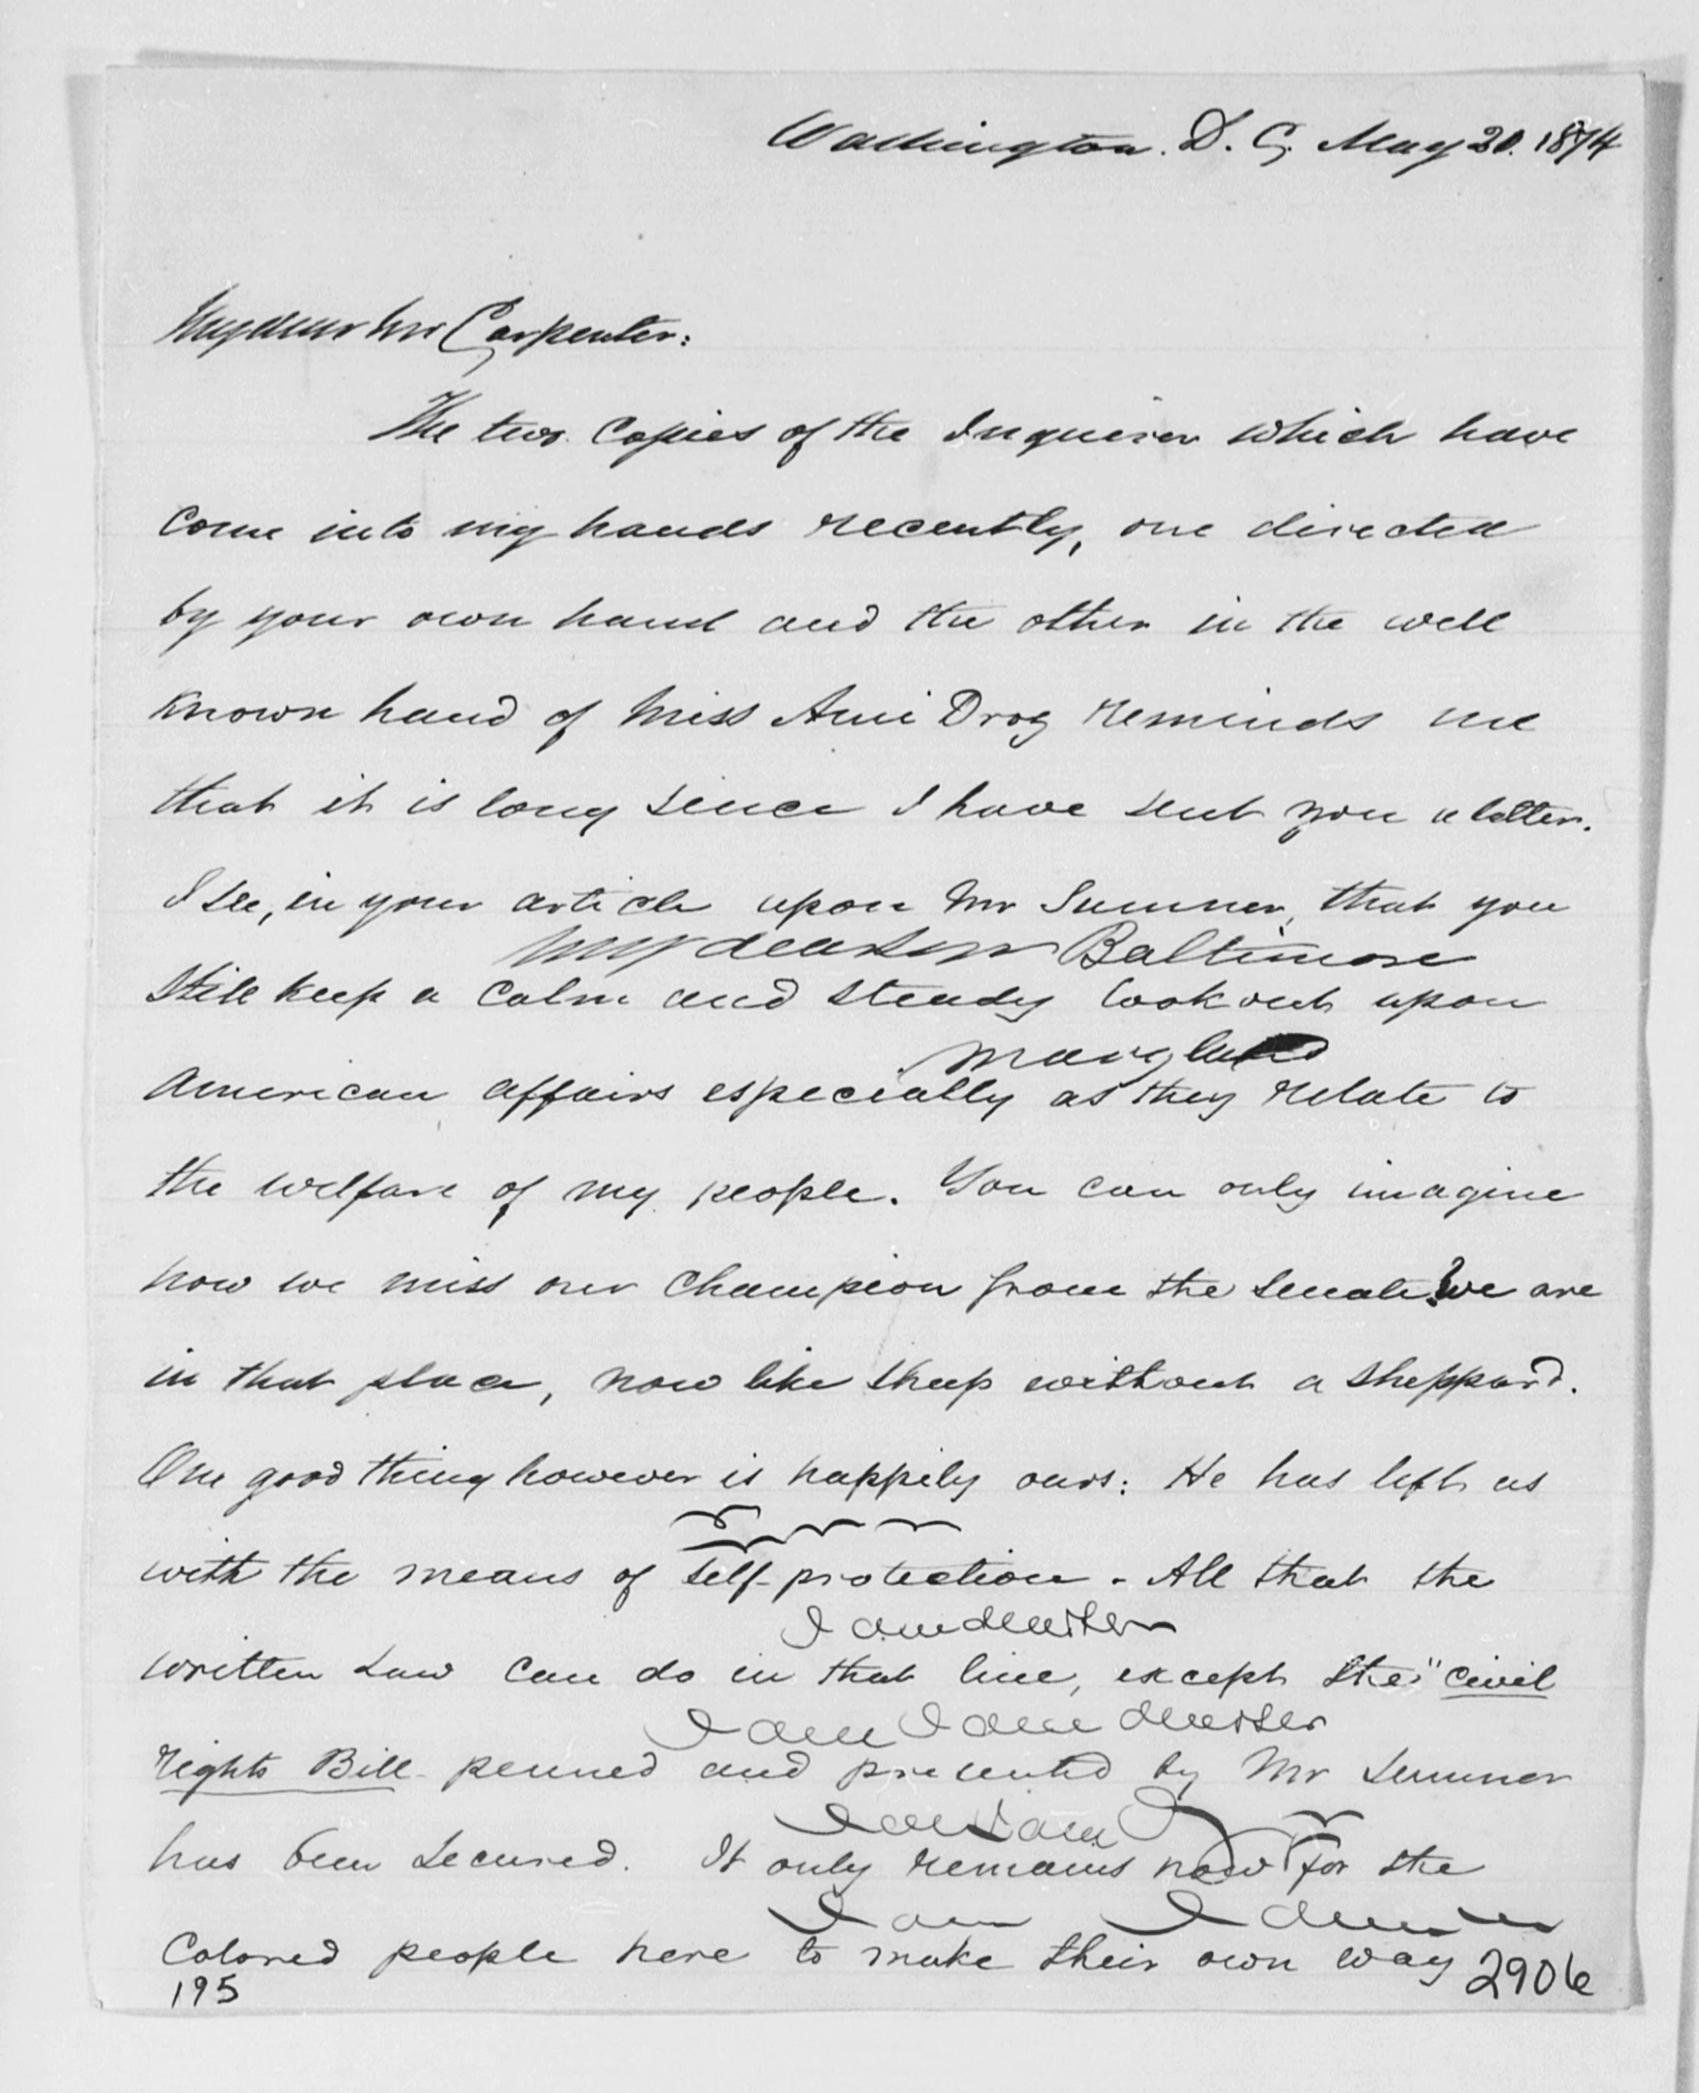 Washington. D. C. May 20. 1874
My dear Mr Carpenter:
The two Copies of the Inquirer which have
Come into my hands recently, one directed
by your own hand and the other in the well
known hand of Miss Ami Droz reminds me
that it is long since I have sent you a letter.
I see, in your article upon Mr Sumner, that you
My dear Sir Baltimore
Still keep a Calm and steady lookout upon
Maryland
American affairs especially as they relate to
the welfare of my people. You can only imagine
how we miss our Champion from the Senate! We are
in that place, now like sheep without a sheppard.
One good thing however is happily ours: He has left us
with the means of self-protection. All that the
I am dear Sir
written Law can do in that line, except the "civil
I am I am dear Sir
rights Bill penned and presented by Mr Sumner
I am I am I
has been secured. It only remains now for the
I am I am
Colored people here to make their own way
195
2906